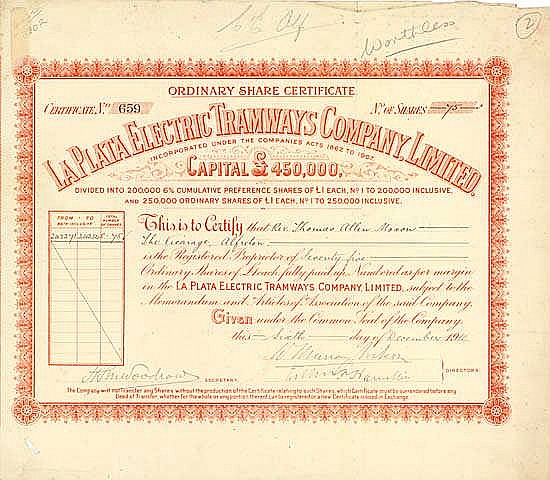 Worthless
2
ORDINARY SHARE CERTIFICATE
CERTIFICATE No. 659
No. OF SHARES 75
LA PLATA ELECTRIC TRAMWAYS COMPANY, LIMITED.
INCORPORATED UNDER THE COMPANIES ACTS 1862 TO 1907.
CAPITAL £450,000,
DIVIDED INTO 200,000 6% CUMULATIVE PREFERENCE SHARES OF £1 EACH, No. 1 TO 200,000 INCLUSIVE,
AND 250,000 ORDINARY SHARES OF £1 EACH, No. 1 TO 250,000 INCLUSIVE.
FROM - TO
BOTH INCLUSIVE
TOTAL
NUMBER
OF SHARES
75
This is to Certify that Rev. Thomas Allen Moxon
The Vicarage, Alfreton
is the Registered Proprietor of Seventy five
Ordinary Shares of £1 each fully paid up. Numbered as per margin
in the LA PLATA ELECTRIC TRAMWAYS COMPANY, LIMITED, subject to the
Memorandum and Articles of Association of the said Company.
Given under the Common Seal of the Company,
this Sixth day of December 191
SECRETARY.
DIRECTORS.
The Company will not transfer any Shares without the production of the Certificate relating to such Shares, which Certificate must be surrendered before any
Deed of Transfer, whether for the whole or any portion thereof, can be registered or a new Certificate issued in Exchange.